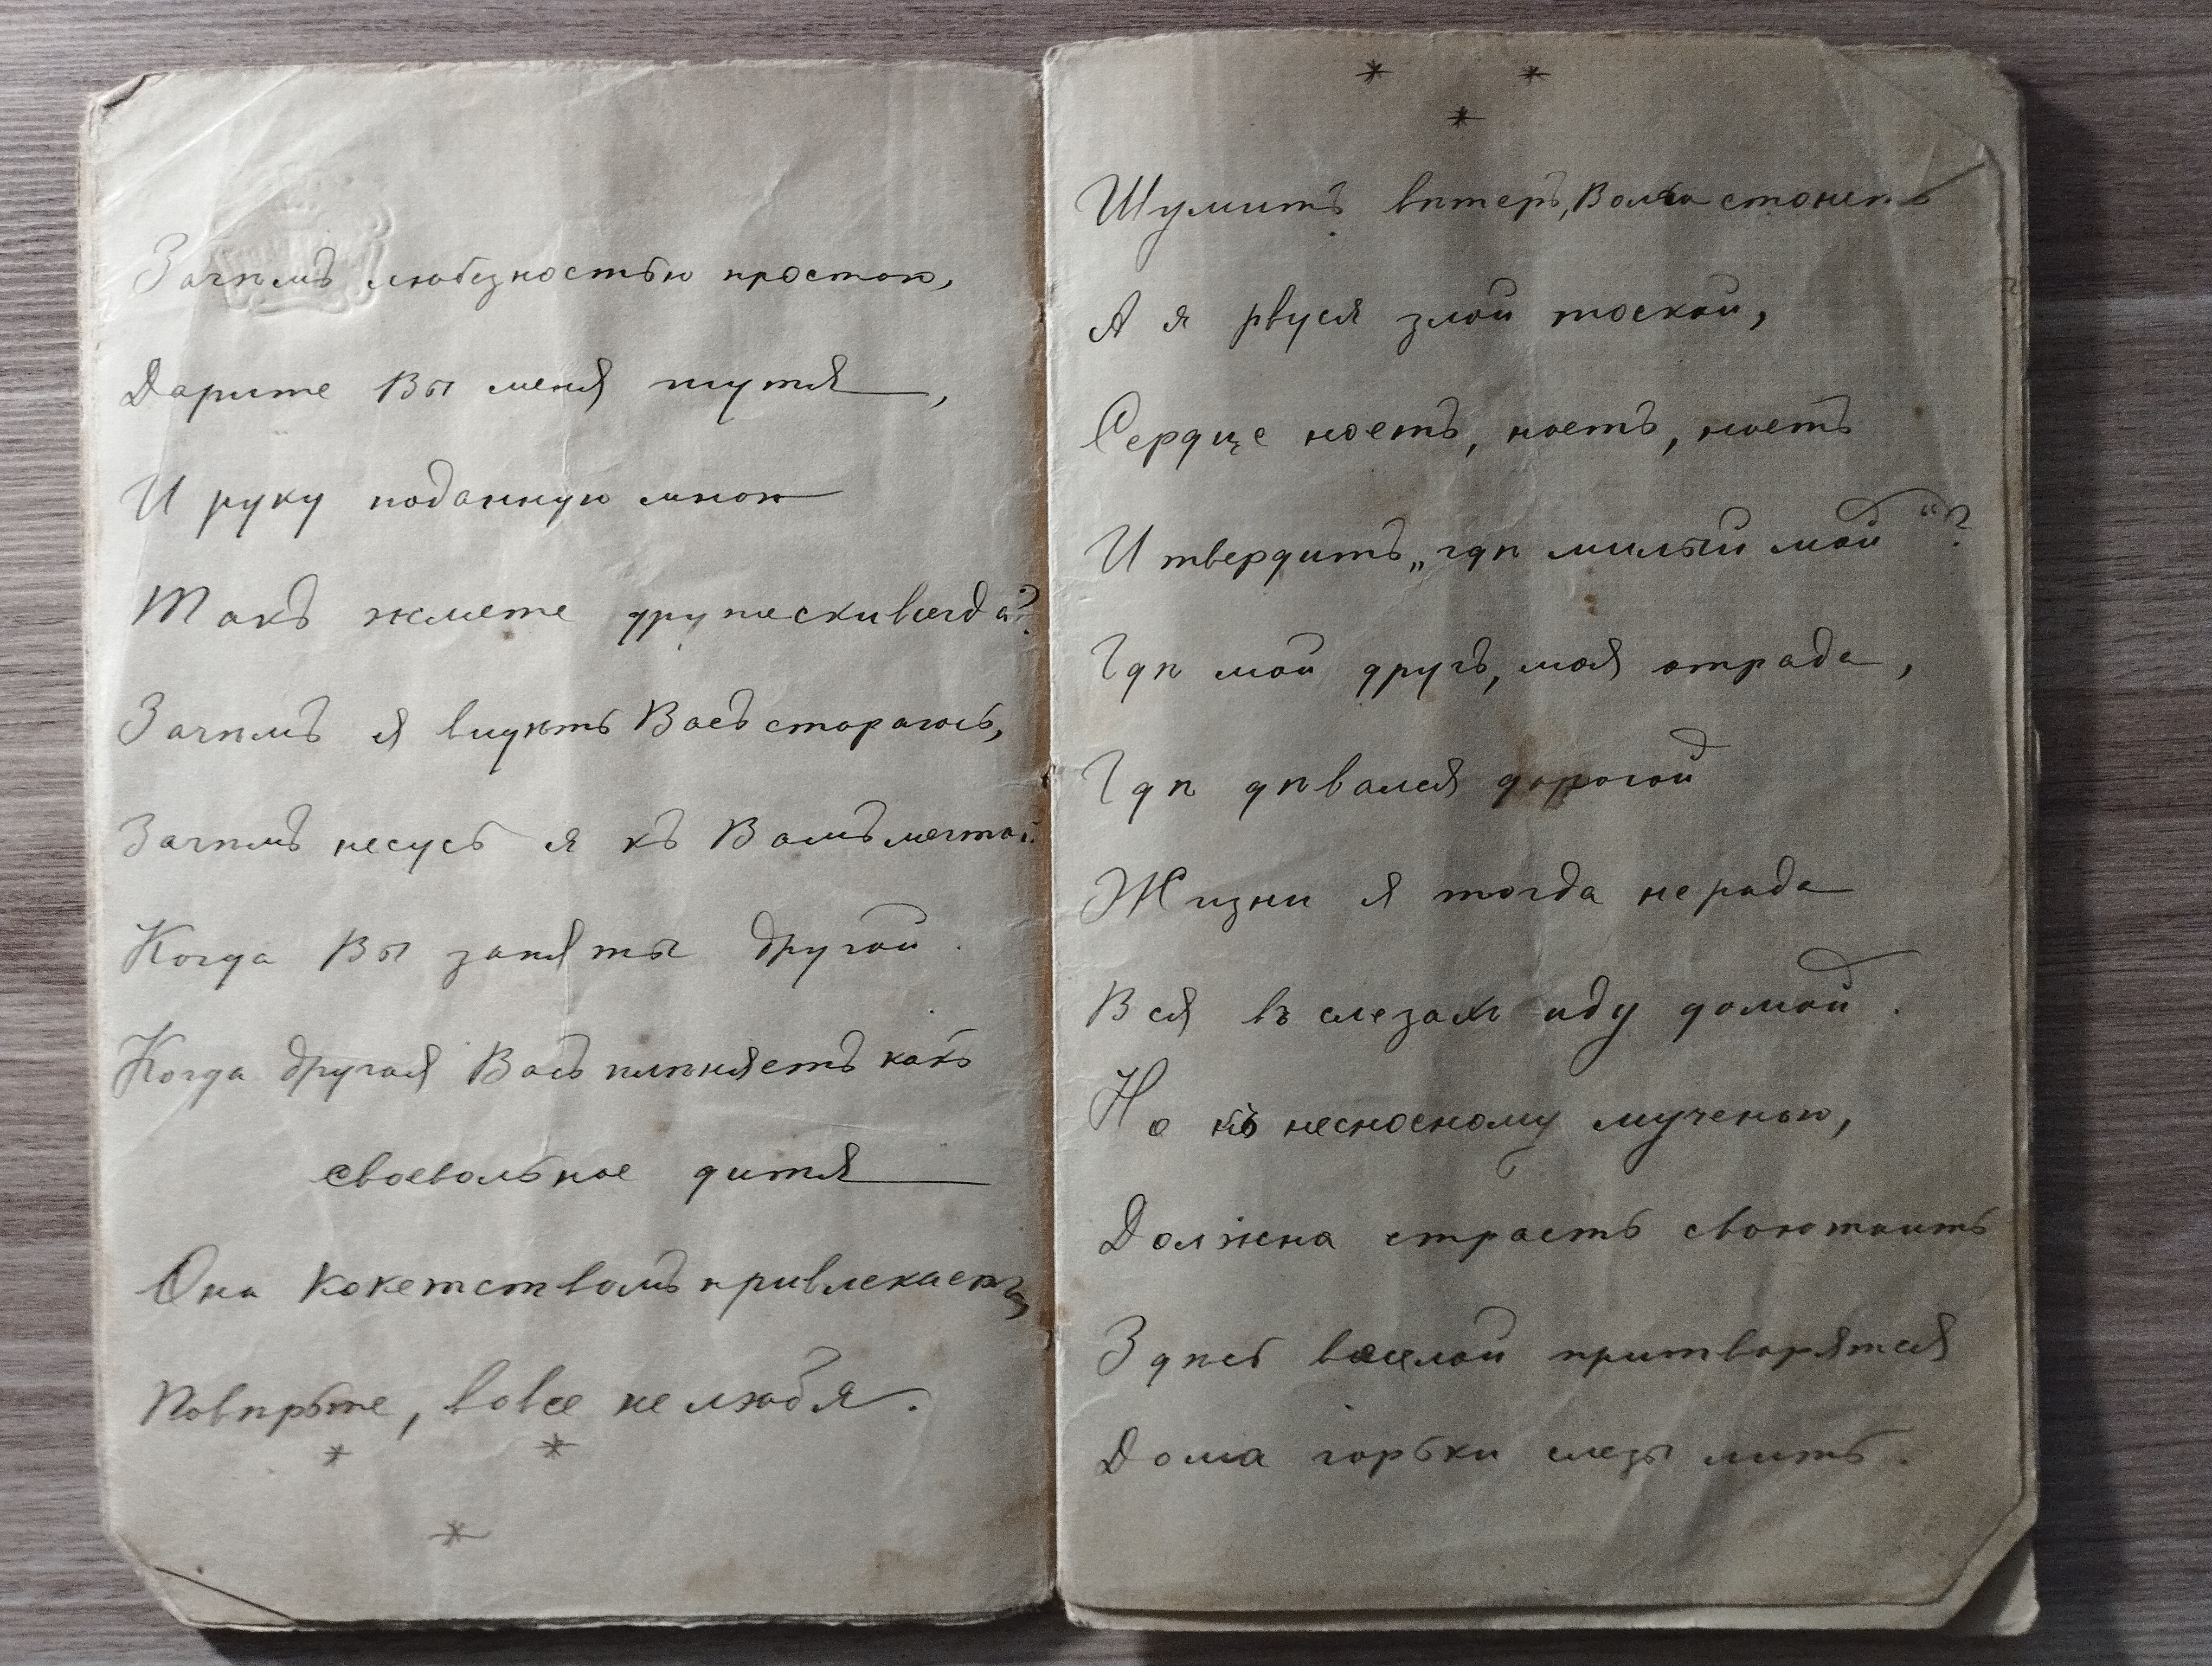 Зачѣмъ любезностью простою,
Дарите Вы меня шутя,
И руку поданную мною
Такъ жмете дружески всегда?
Зачѣмъ я видѣть Васъ стараюсь,
Зачѣмъ несусь я къ Вамъ мечтой.
Когда Вы заняты другой.
Когда другая Васъ плѣняетъ какъ
своевольное дитя
Она кокетствомъ привлекаетъ,
Повѣрьте, вовсе не любя.
* *
*
* *
*
Шумитъ вѣтеръ, Волга стонетъ
А я рвуся злой тоской,
Сердце ноетъ, ноетъ, ноетъ
И твердитъ „гдѣ милый мой“?
Гдѣ мой другъ, моя отрада,
Гдѣ дѣвался дорогой
Жизни я тогда не рада
Вся въ слезахъ иду домой.
Но къ несносному мученью,
Должна страсть свою таить
Здѣсь веселой притворятся
Дома горьки слезы лить.